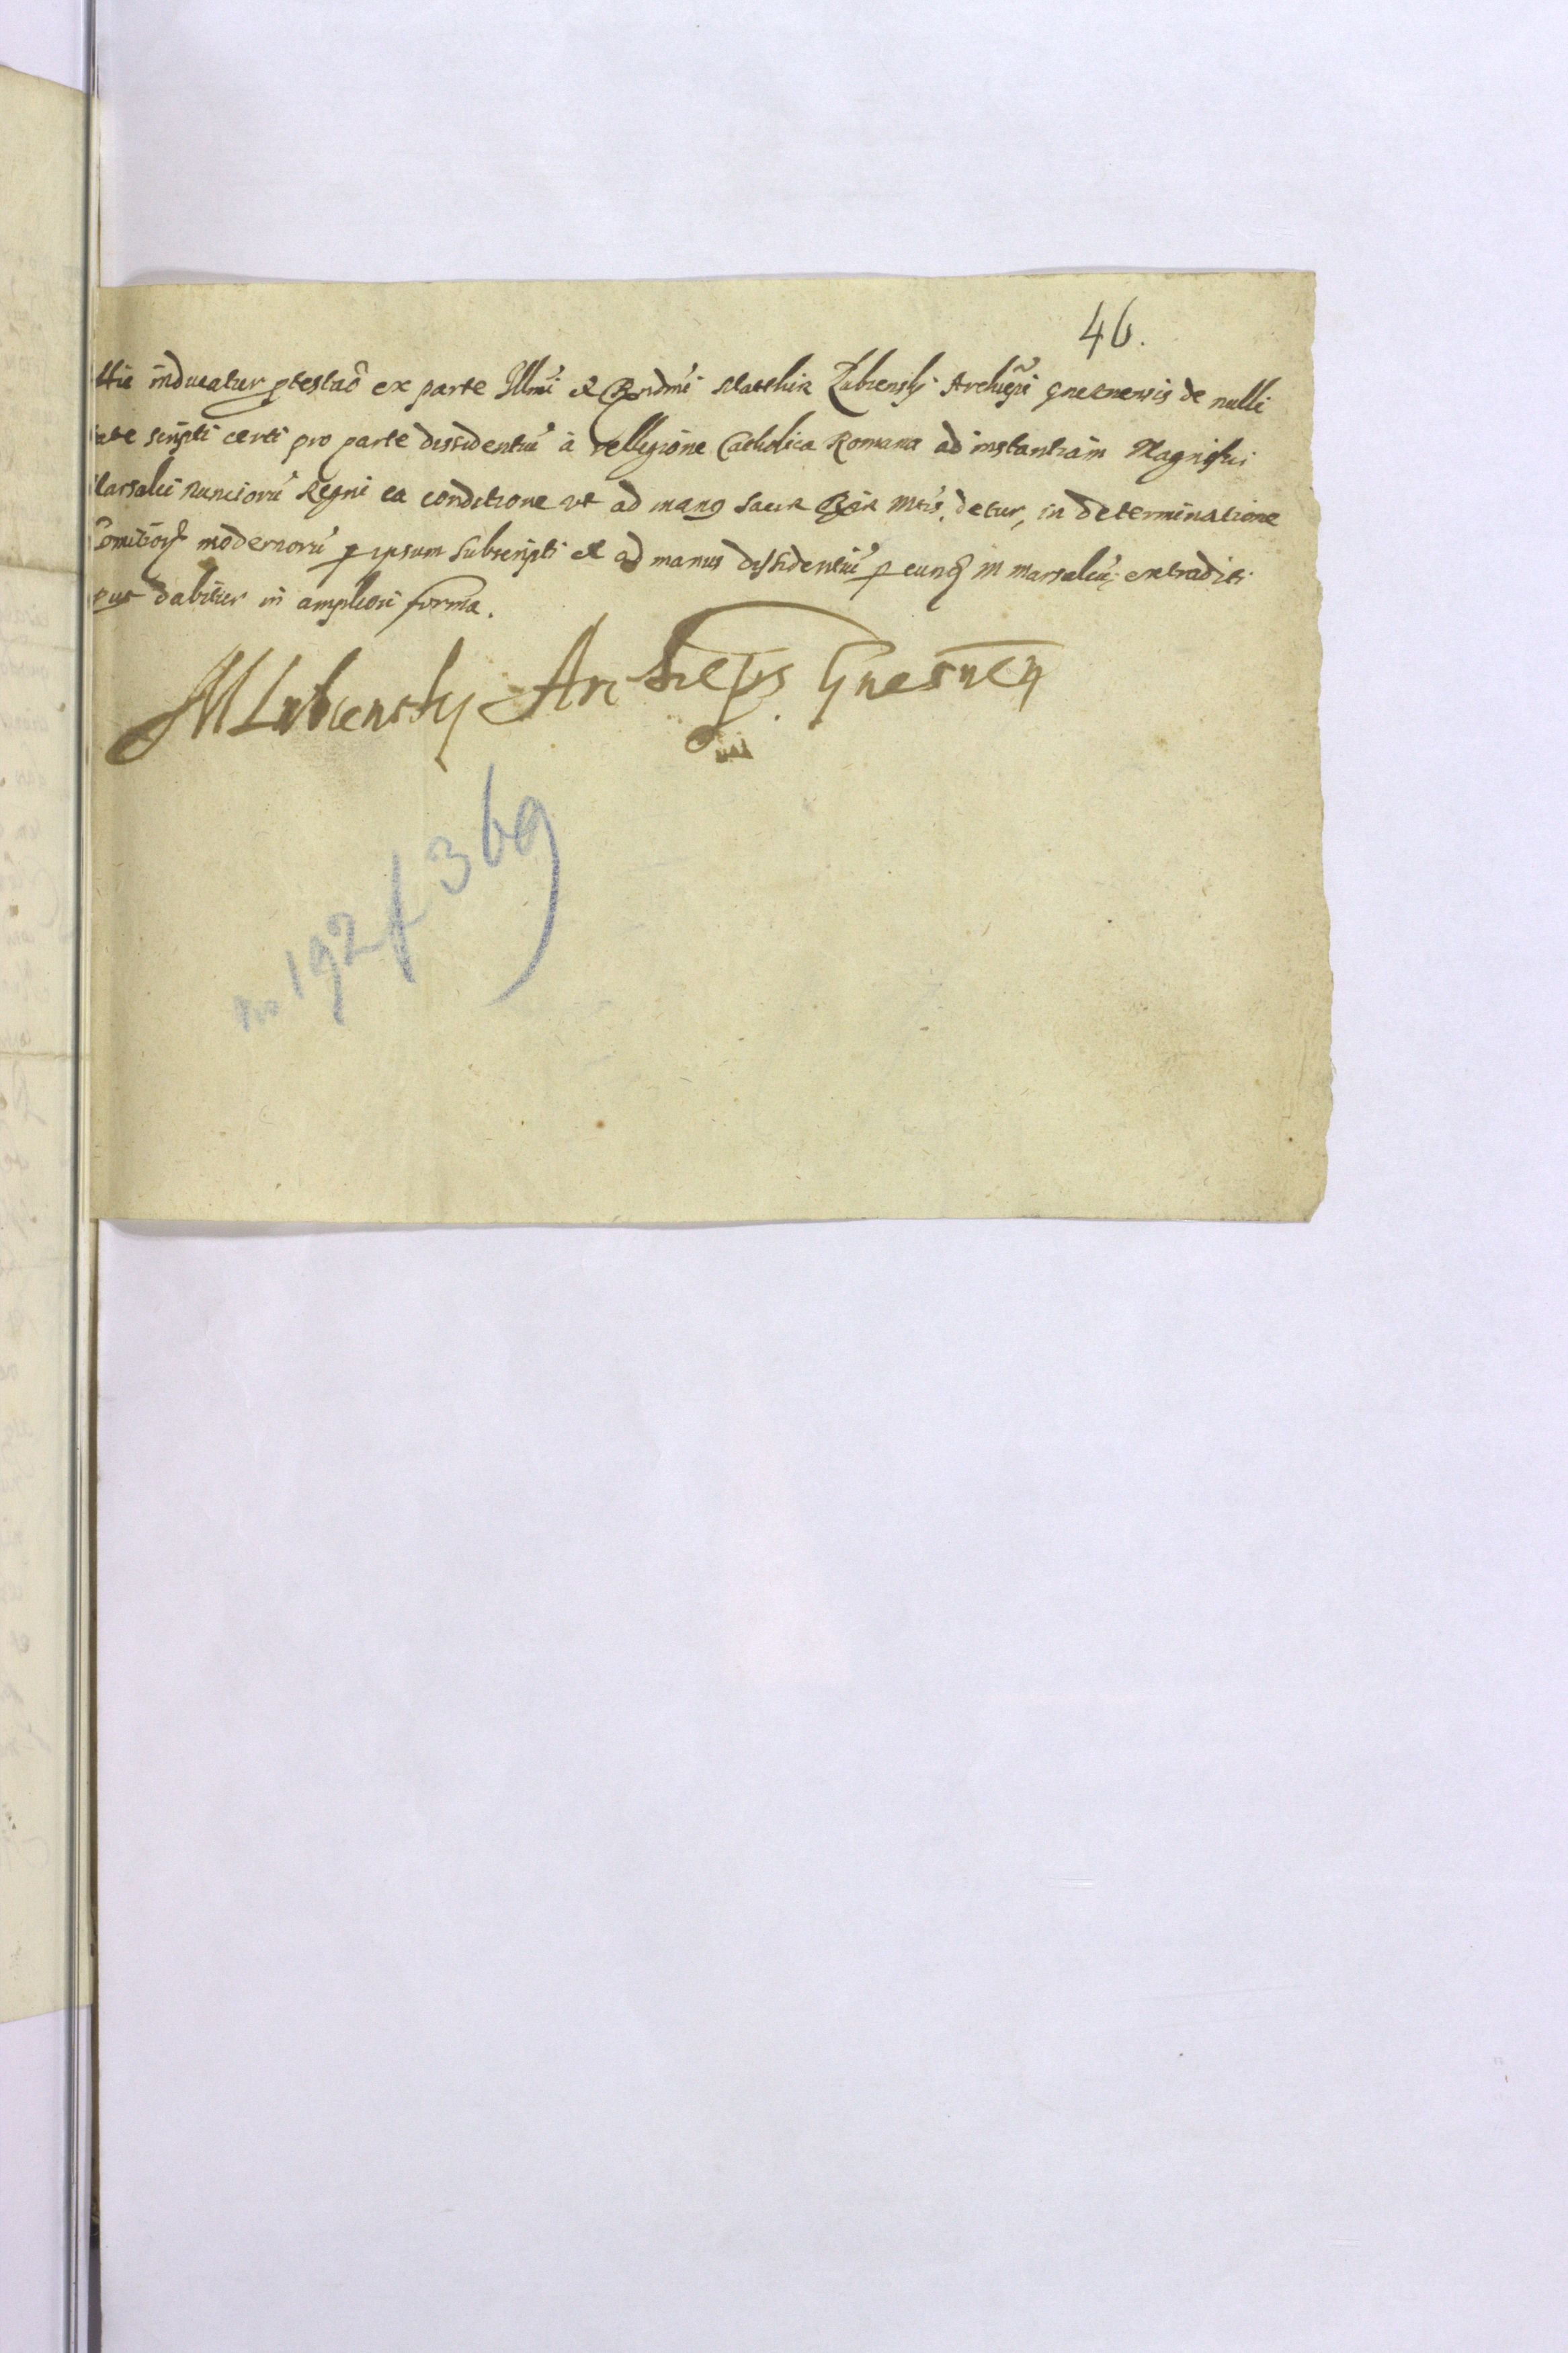 46.
Hic inducatur ptestaõ ex parte Illmi et Rndmi Matthiæ Łubiensky Archiepi Gneznensis de nulli
tate scripti certi pro parte dissidentiu à relligione Catholica Romana ad instantiam Magnifici
Marsalci Nunciorũ Regni ea conditione vt ad manꝰ Sacræ Rgiæ Mtis. detur, in determinatione
Comitiorꝫ modernorũ p ipsum subscripti et ad manus dissidentiũ p eunꝫ m marsalcũ extraditi
put dabitur in ampliori forma.
MLubiensky Archieps Gnesnen
mp
no 192 f 369